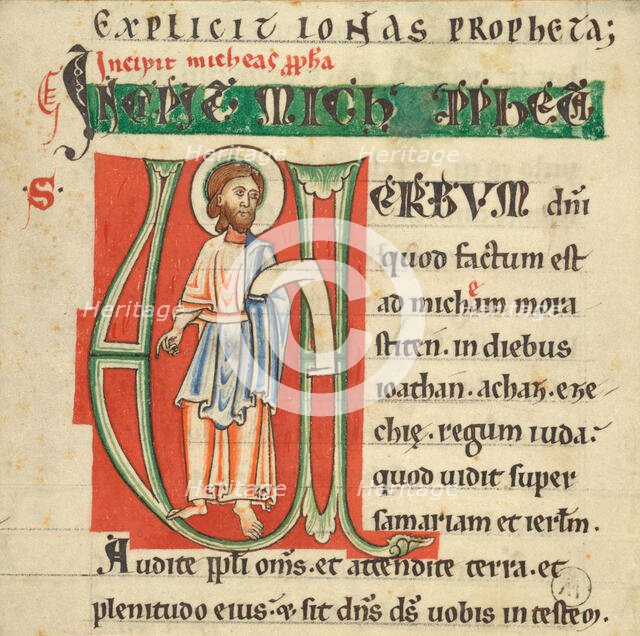 EXPLICIT IONAS PROPHETA;
Incipit micheas ppha
INCIPIT MICH PPHETA
.S.
VERBVM dni
quod factum est
ad micheam mora
stiten. in diebus
ioathan. achaz. eze
chię. regum iuda.
quod uidit super
samariam et ierlm.
Audite ppli oms. et attendite terra. et
plenitudo eius. & sit dns ds uobis in testem.
Heritage Heritage
Heritage Heritage
Heritage Heritage
Heritage Heritage